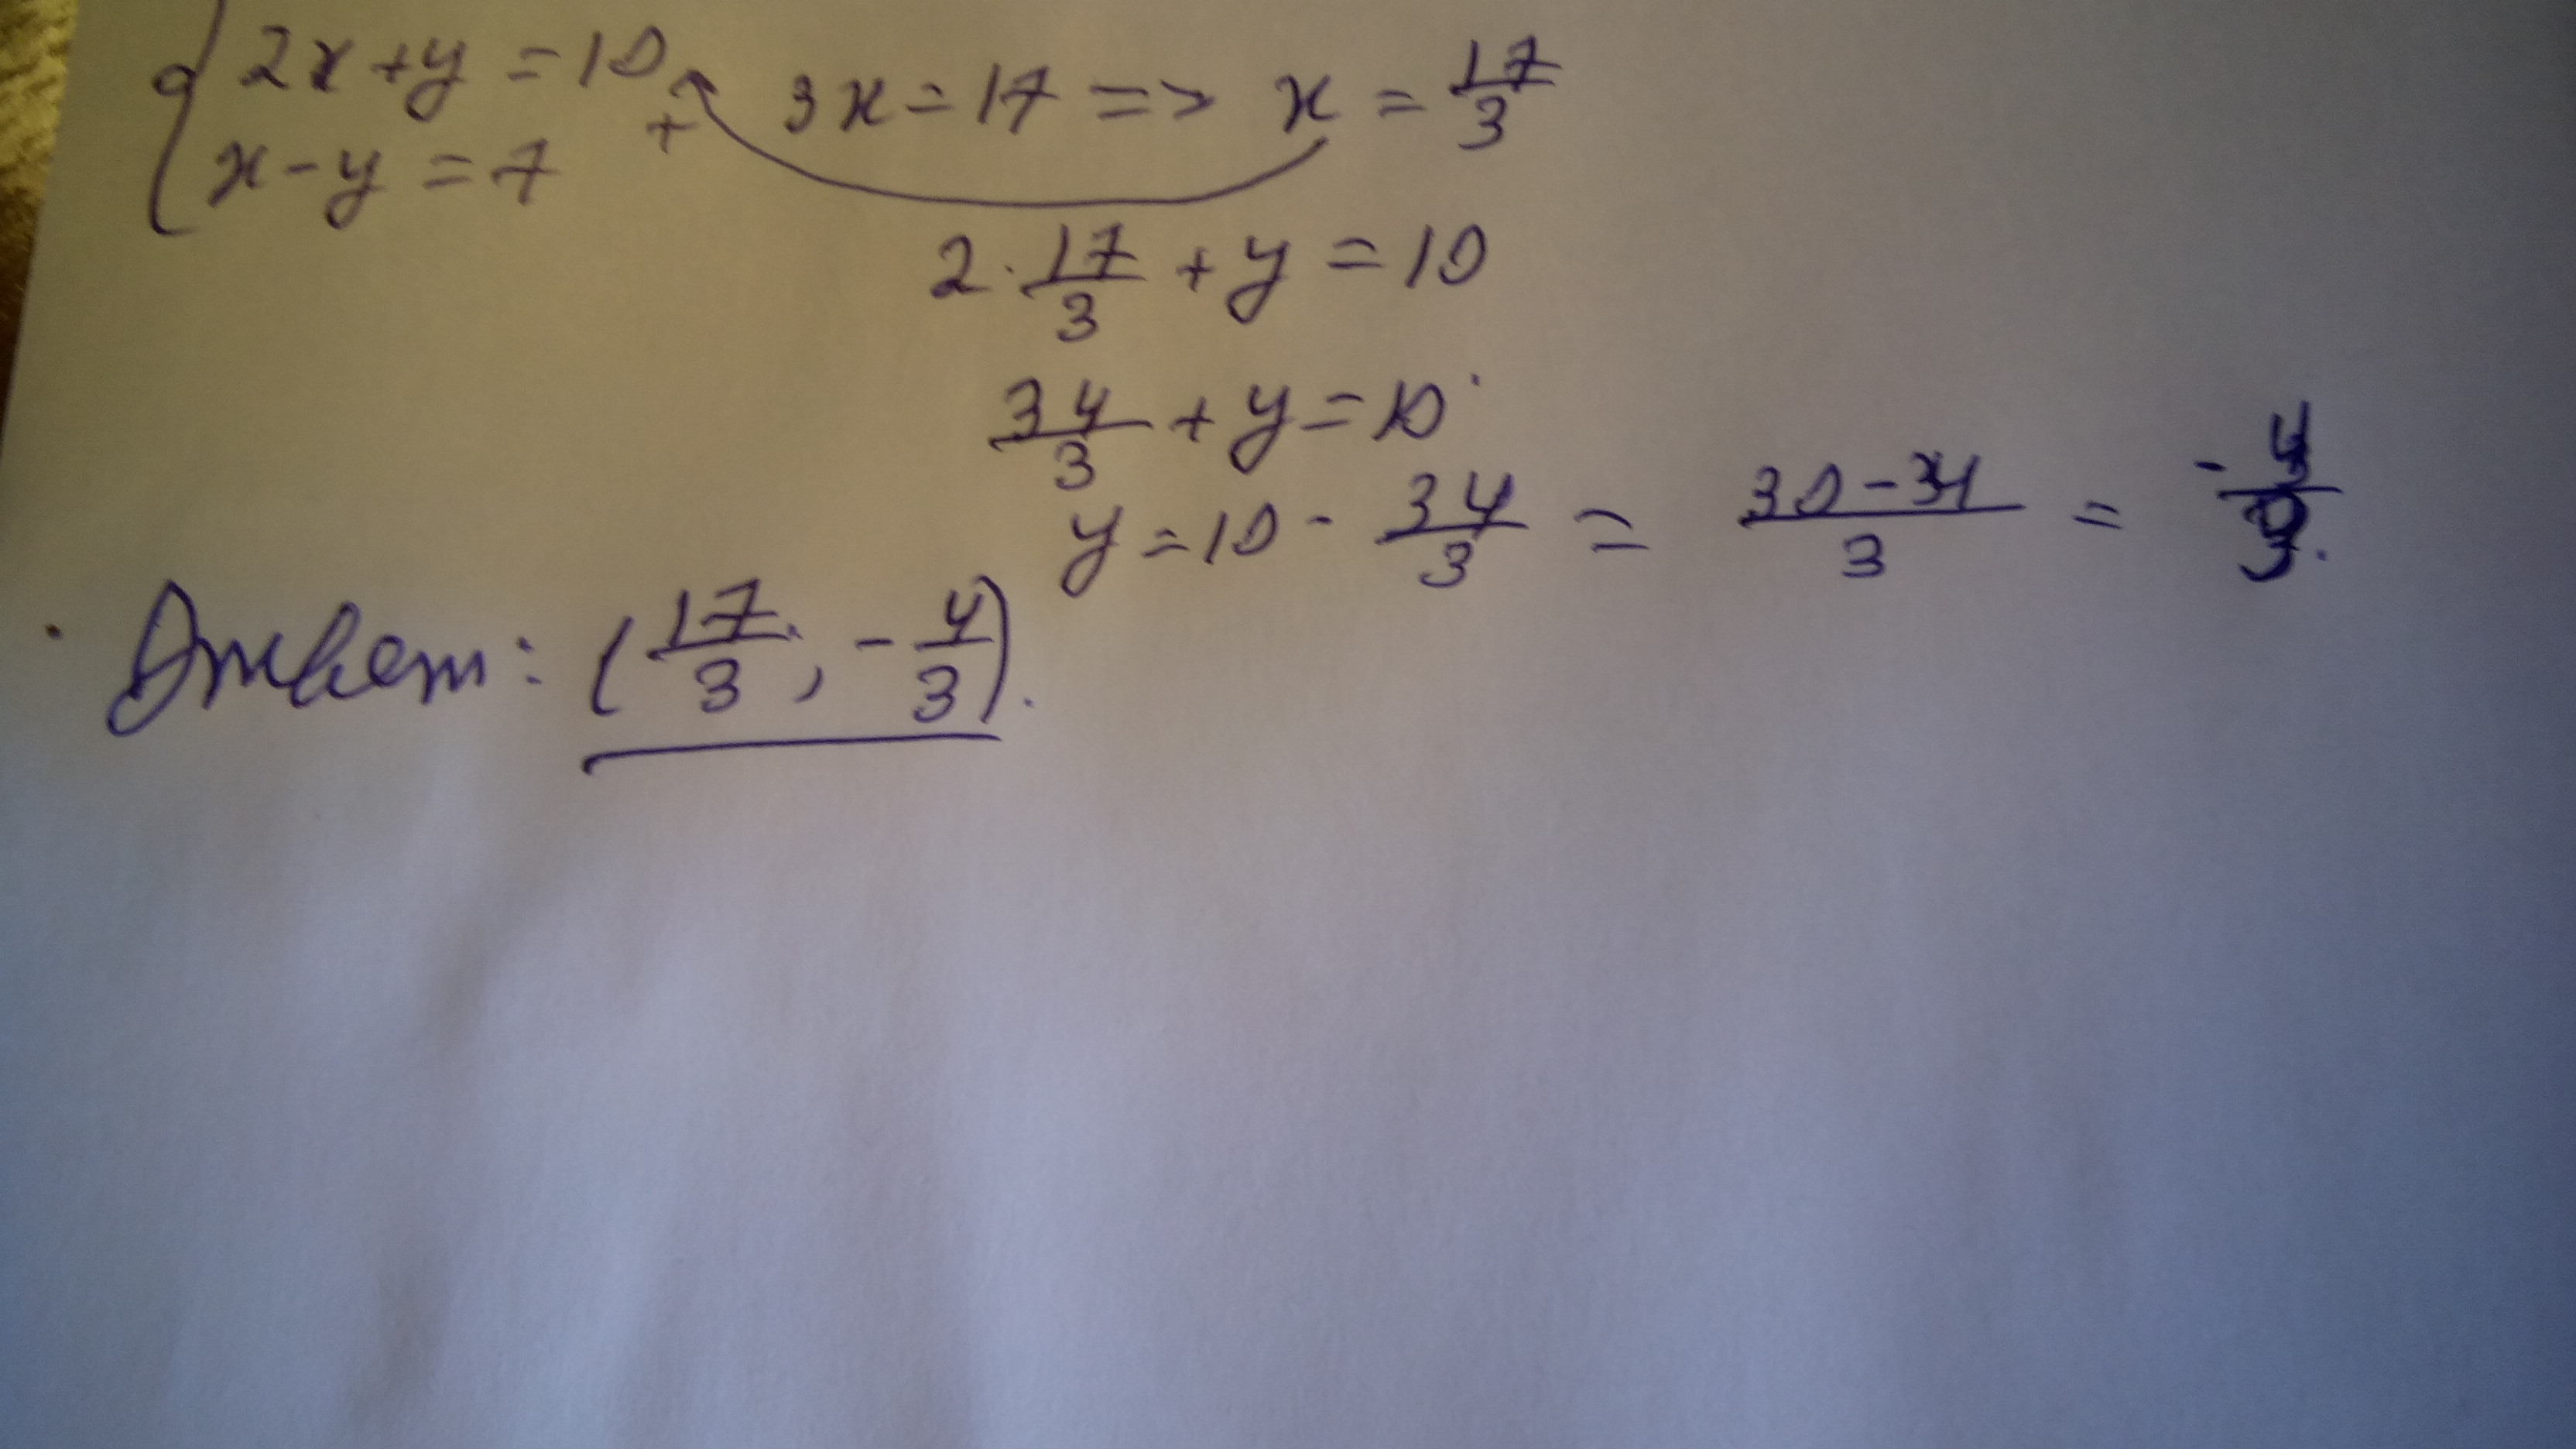 2x + y = 10
x - y = 7
+
3x = 17 => x = 17/3
2 · 17/3 + y = 10
34/3 + y = 10
y = 10 - 34/3 = (30 - 34)/3 = -4/3.
Ответ: (17/3; -4/3).